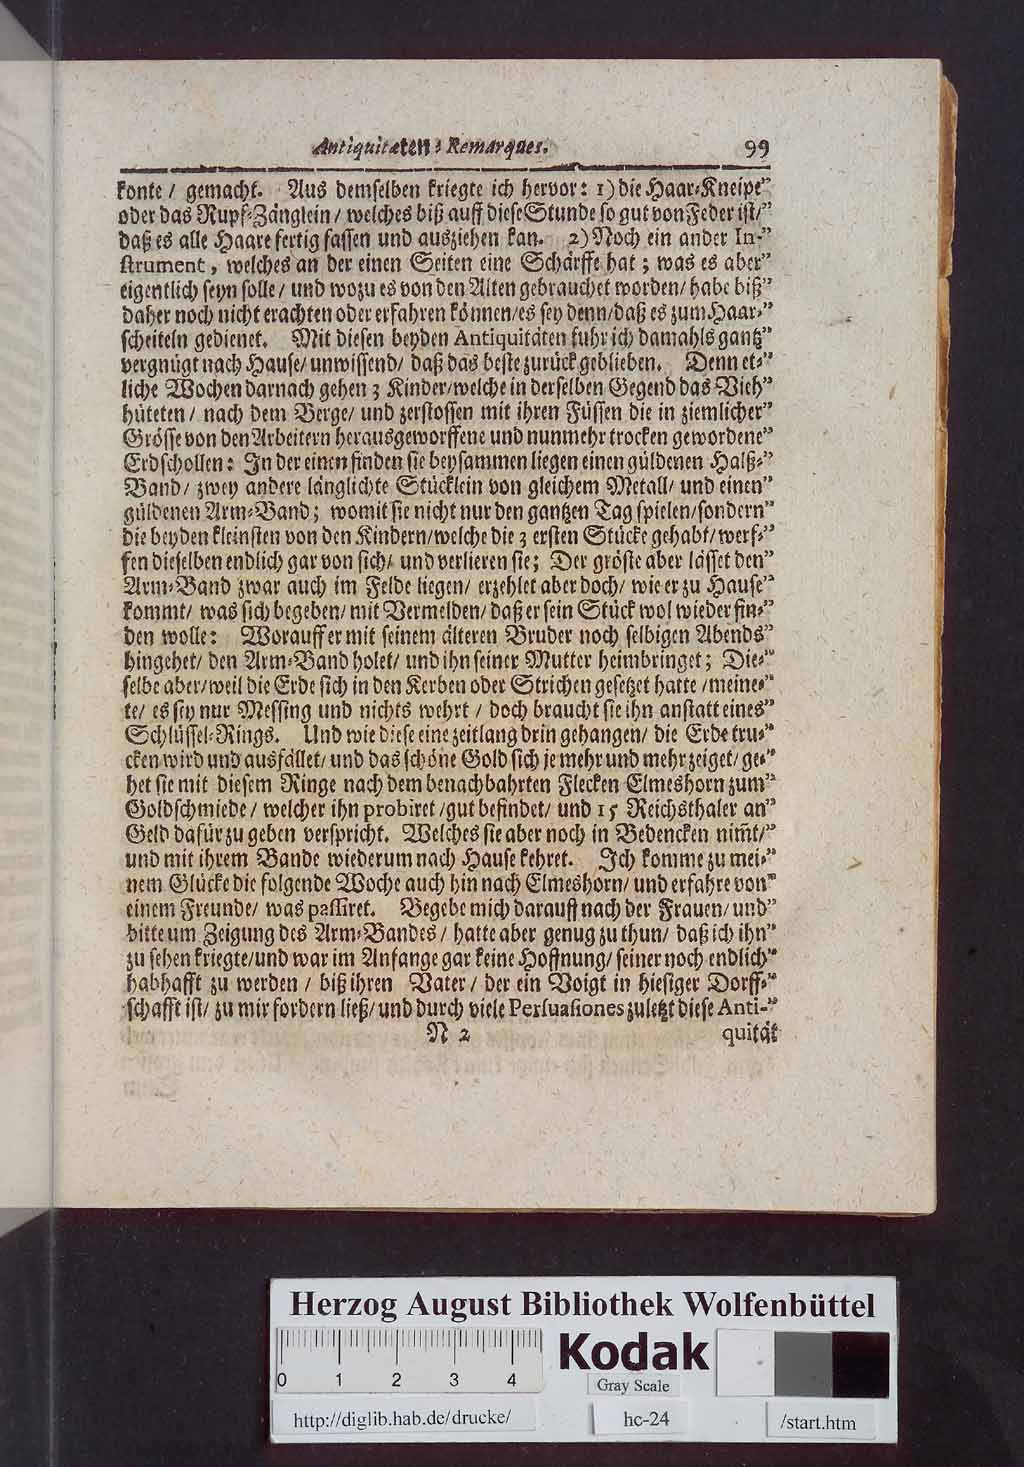 Antiquitæten-Remarques. 99
konte/ gemacht. Aus demselben kriegte ich hervor: 1) die Haar-Kneipe”
oder das Rupf-Zänglein/ welches biß auff diese Stunde so gut von Feder ist/”
daß es alle Haare fertig fassen und ausziehen kan. 2) Noch ein ander In-”
strument, welches an der einen Seiten eine Schärffe hat; was es aber”
eigentlich seyn solle/ und wozu es von den Alten gebrauchet worden/ habe biß”
daher noch nicht erachten oder erfahren können/ es sey denn/ daß es zum Haar-”
scheiteln gedienet. Mit diesen beyden Antiquitäten fuhr ich damahls gantz”
vergnügt nach Hause/ unwissend/ daß das beste zurück geblieben. Denn et-”
liche Wochen darnach gehen 3 Kinder/ welche in derselben Gegend das Vieh”
hüteten/ nach dem Berge/ und zerstossen mit ihren Füssen die in ziemlicher”
Grösse von den Arbeitern herausgeworffene und nunmehr trocken gewordene”
Erdschollen: In der einen finden sie beysammen liegen einen güldenen Halß-”
Band/ zwey andere länglichte Stücklein von gleichem Metall/ und einen”
güldenen Arm-Band; womit sie nicht nur den gantzen Tag spielen/ sondern”
die beyden kleinsten von den Kindern/ welche die 3 ersten Stücke gehabt/ werf-”
fen dieselben endlich gar von sich/ und verlieren sie; Der gröste aber lässet den”
Arm-Band zwar auch im Felde liegen/ erzehlet aber doch/ wie er zu Hause”
kommt/ was sich begeben/ mit Vermelden/ daß er sein Stück wol wieder fin-”
den wolle: Worauff er mit seinem älteren Bruder noch selbigen Abends”
hingehet/ den Arm-Band holet/ und ihn seiner Mutter heimbringet; Die-”
selbe aber/ weil die Erde sich in den Kerben oder Strichen gesetzet hatte/ meine-”
te/ es sey nur Messing und nichts wehrt/ doch braucht sie ihn anstatt eines”
Schlüssel-Rings. Und wie diese eine zeitlang drin gehangen/ die Erde tru-”
cken wird und ausfället/ und das schöne Gold sich je mehr und mehr zeiget/ ge-”
het sie mit diesem Ringe nach dem benachbahrten Flecken Elmeshorn zum”
Goldschmiede/ welcher ihn probiret/ gut befindet/ und 15 Reichsthaler an”
Geld dafür zu geben verspricht. Welches sie aber noch in Bedencken nim̃t/”
und mit ihrem Bande wiederum nach Hause kehret. Ich komme zu mei-”
nem Glücke die folgende Woche auch hin nach Elmeshorn/ und erfahre von”
einem Freunde/ was passiret. Begebe mich darauff nach der Frauen/ und”
bitte um Zeigung des Arm-Bandes/ hatte aber genug zu thun/ daß ich ihn”
zu sehen kriegte/ und war im Anfange gar keine Hoffnung/ seiner noch endlich”
habhafft zu werden/ biß ihren Vater/ der ein Voigt in hiesiger Dorff-”
schafft ist/ zu mir fordern ließ/ und durch viele Persuasiones zuletzt diese Anti-”
N 2 quität
Herzog August Bibliothek Wolfenbüttel
0 1 2 3 4
Kodak
Gray Scale
http://diglib.hab.de/drucke/ hc-24 /start.htm